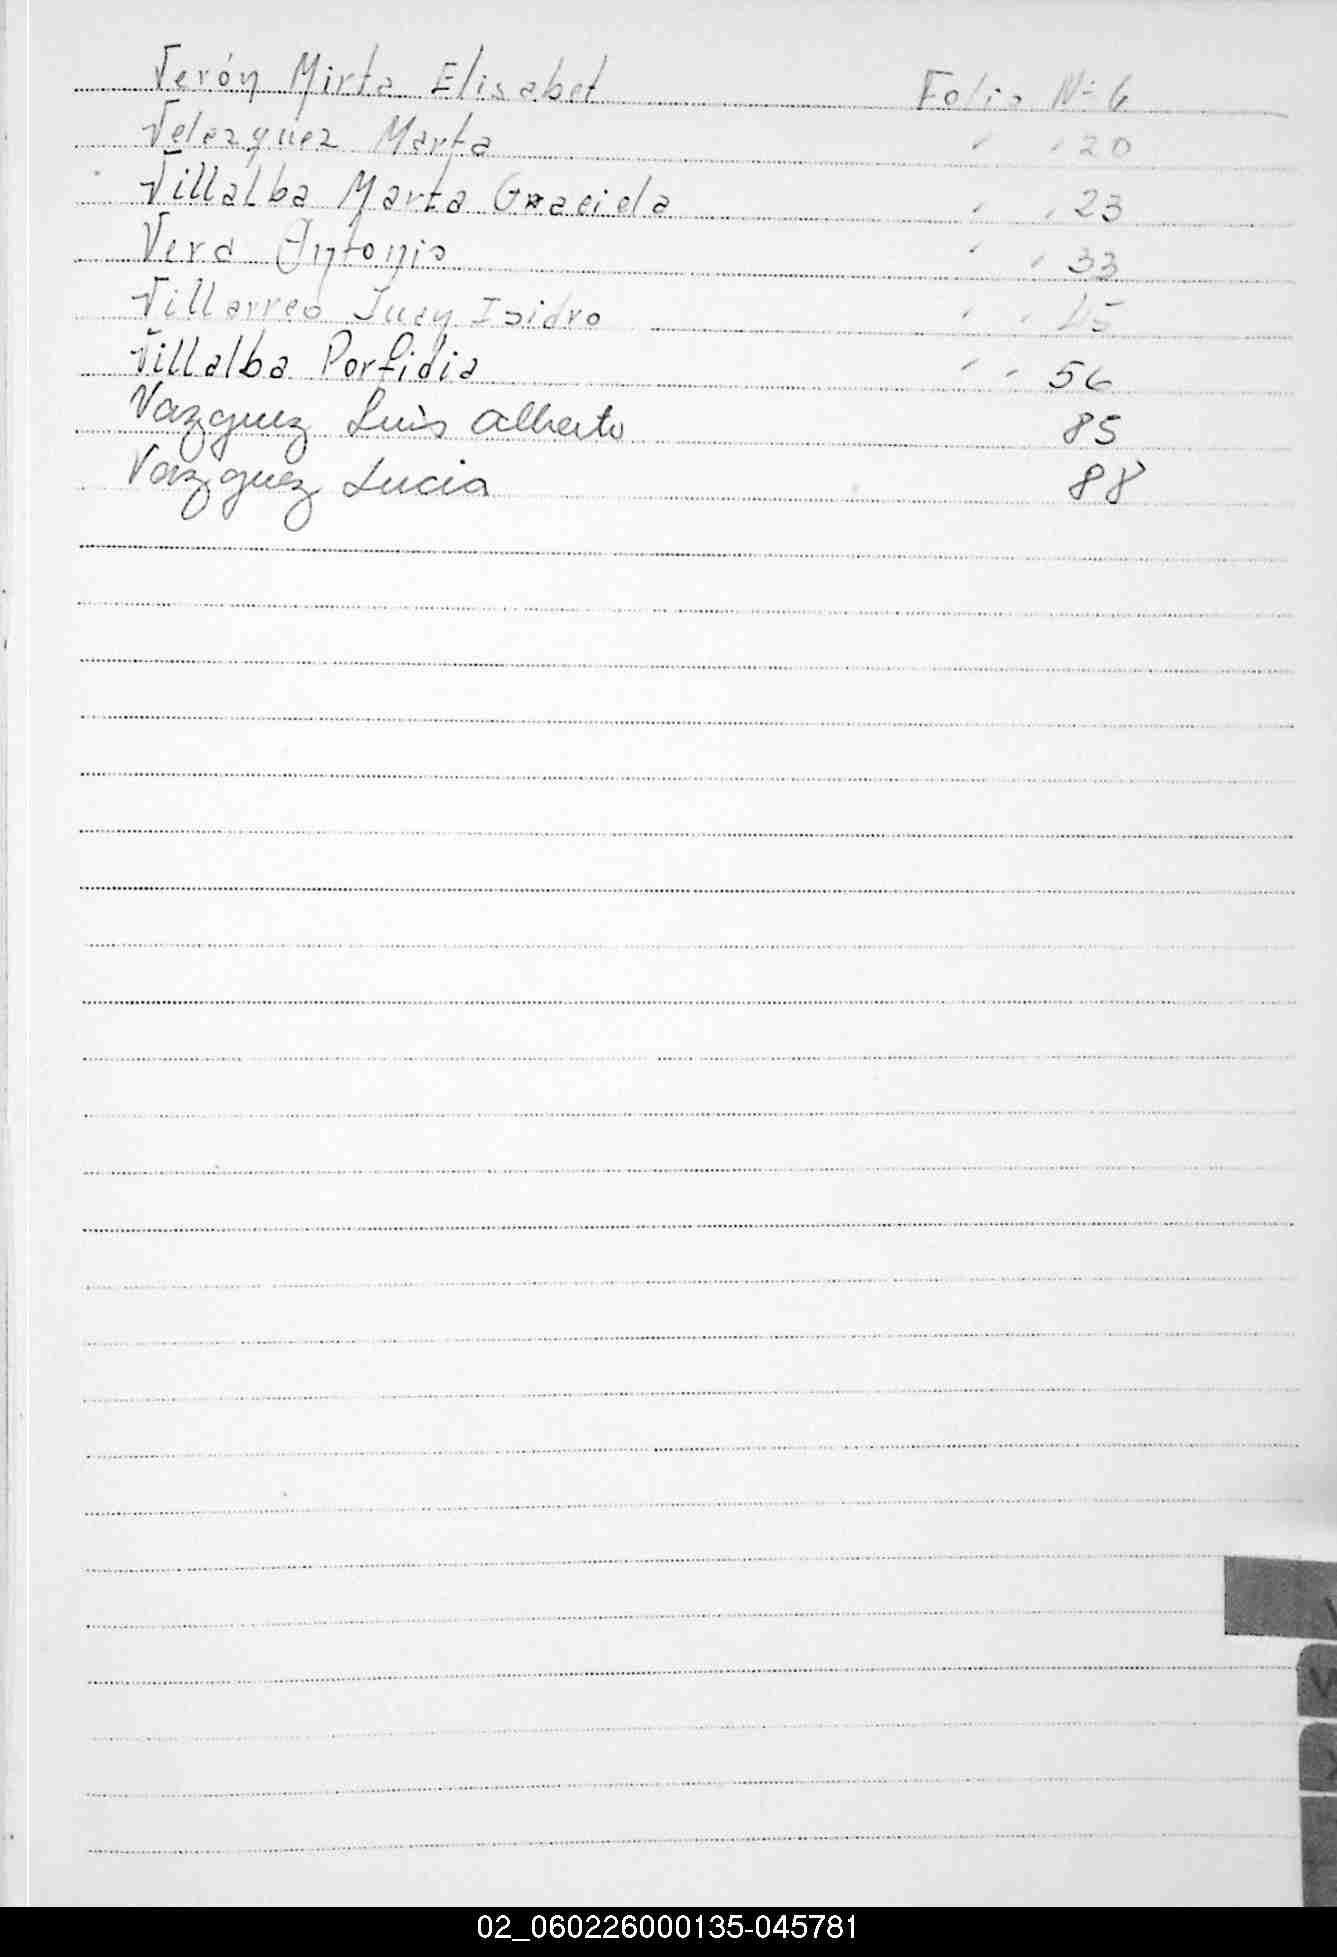 Verón Mirta Elisabet Folio Nº 6
Velazquez Marta " " 20
Villalba Marta Graciela " " 23
Vera Antonio " " 33
Villarreo Juan Isidro " " 45
Villalba Porfidia " " 56
Vazquez Luis Alberto 85
Vazquez Lucia 88
02_060226000135-045781